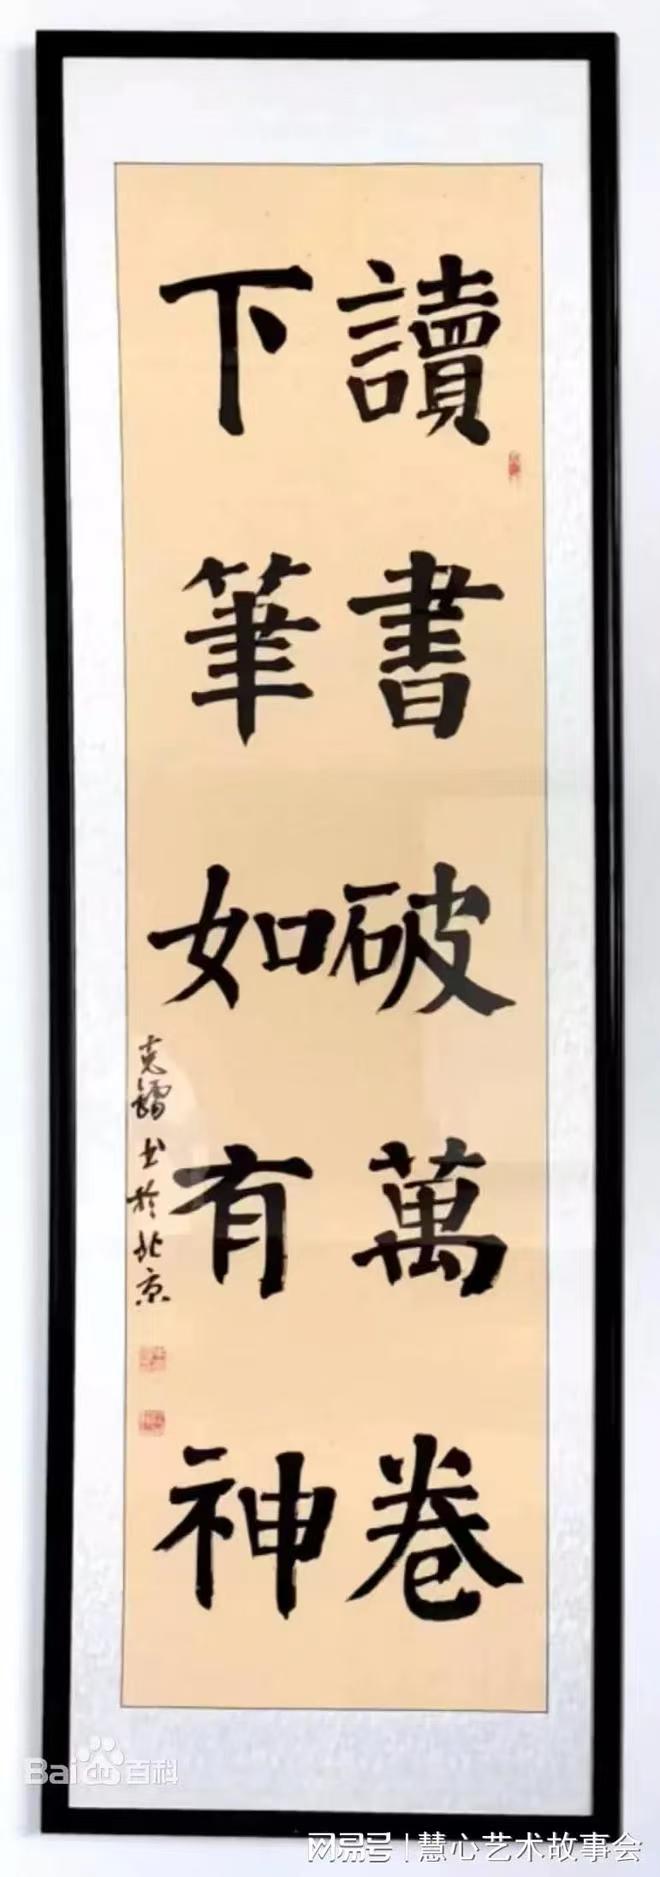 讀書破萬卷
下筆如有神
克鐳书於北京
Bai百科
网易号 | 慧心艺术故事会